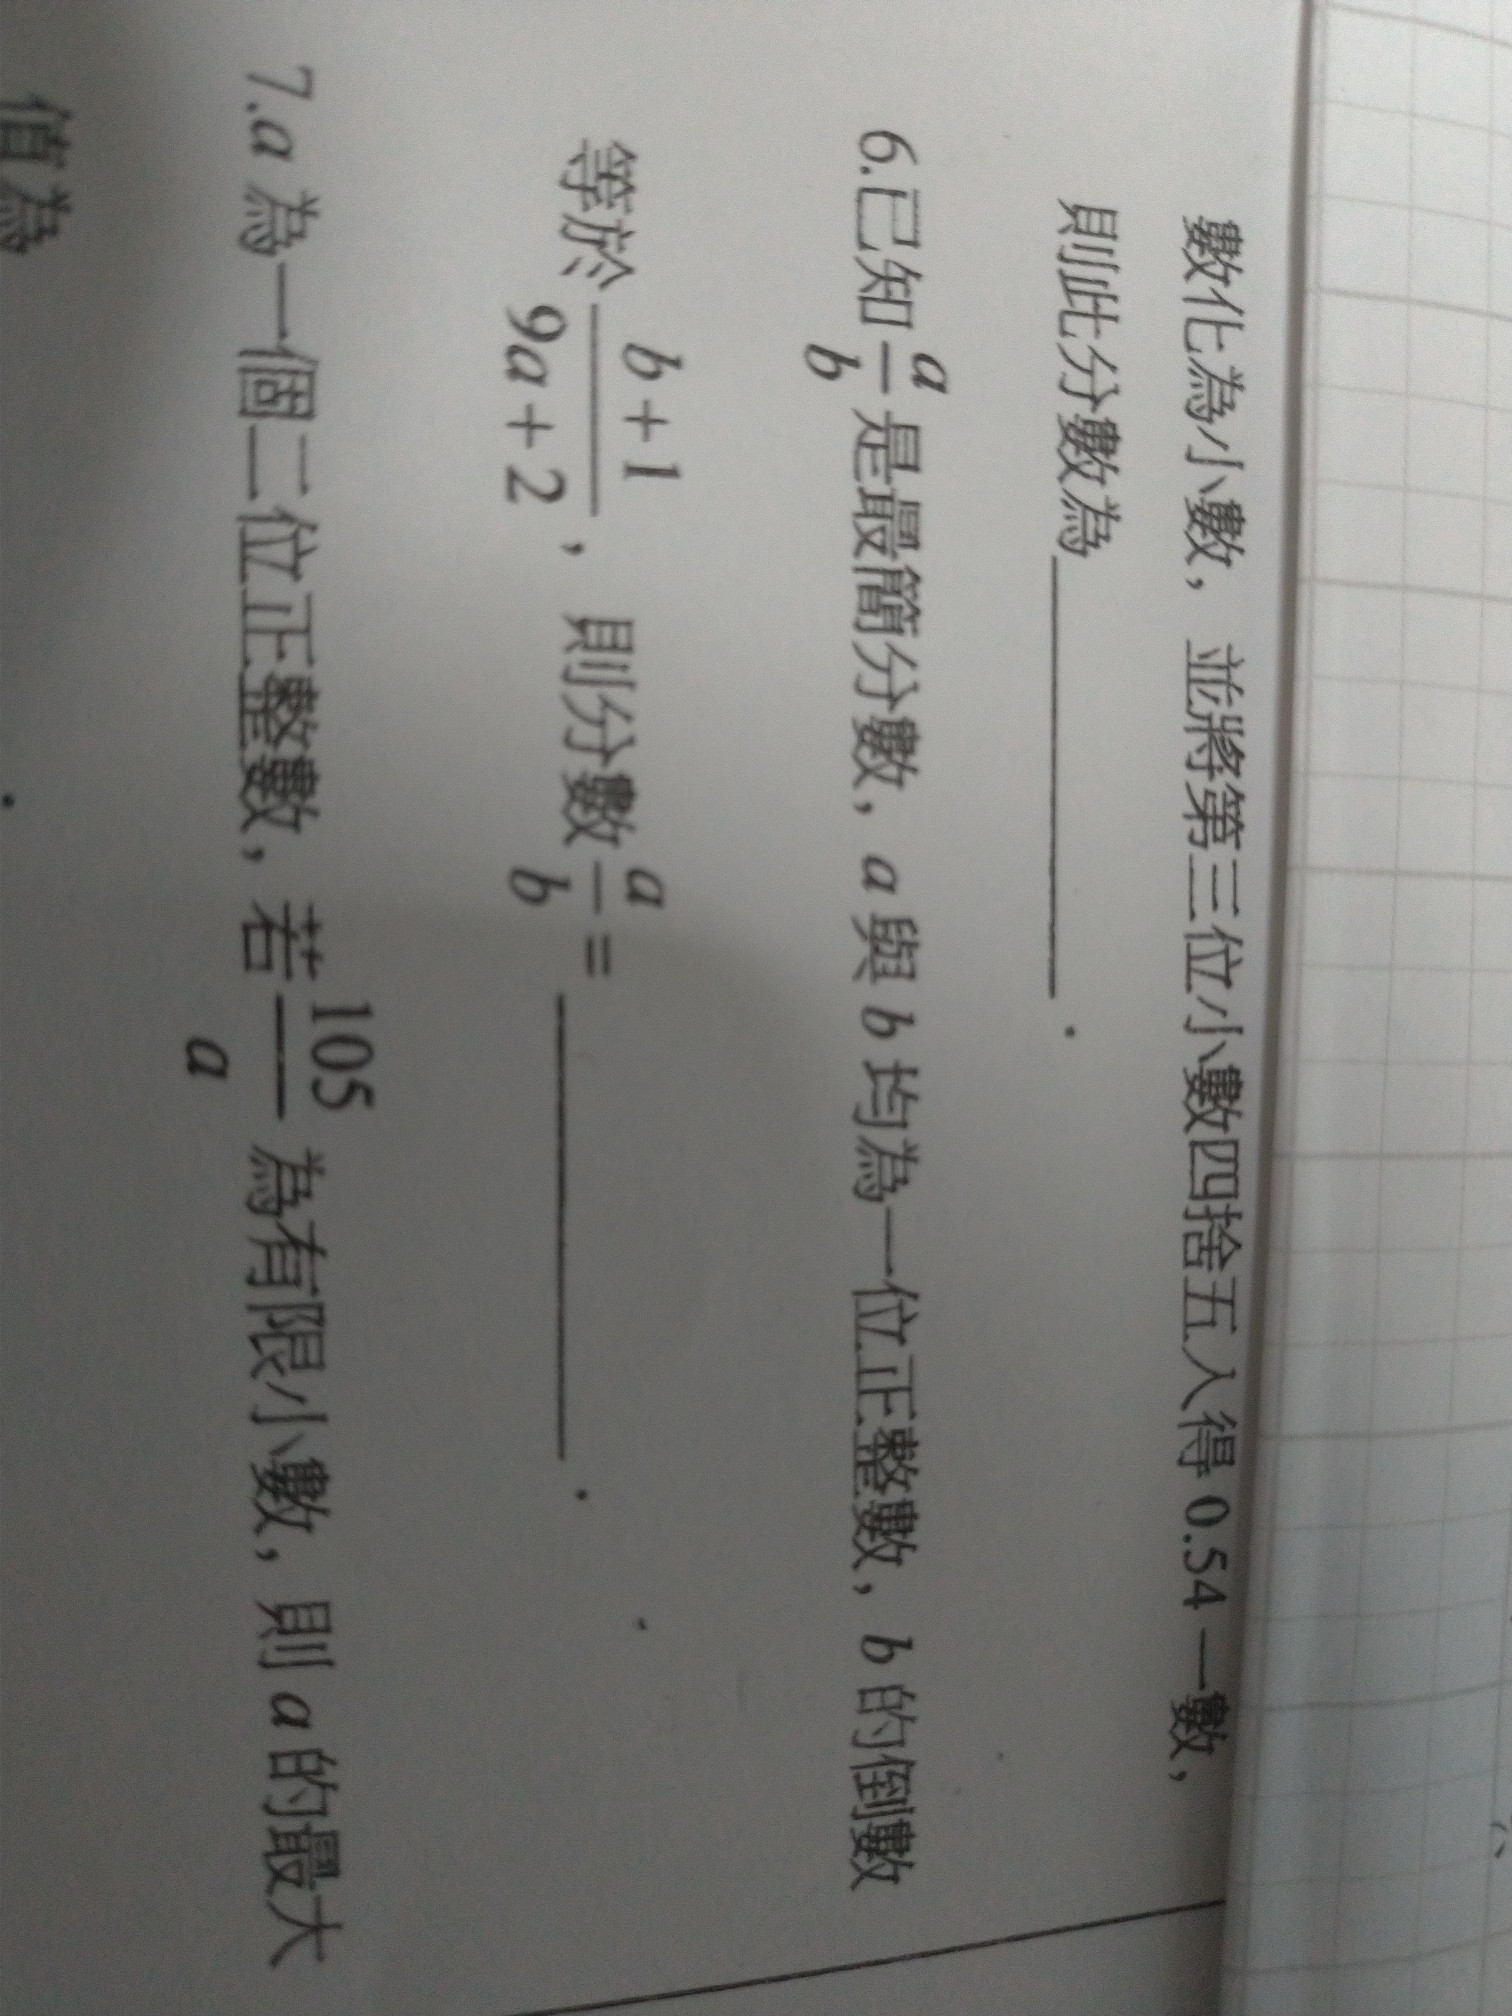 數化為小數，並將第三位小數四捨五入得 0.54 一數，
則此分數為＿＿＿＿＿＿．
6.已知 a/b 是最簡分數，a 與 b 均為一位正整數，b 的倒數
等於 (b+1)/(9a+2)，則分數 a/b = ＿＿＿＿＿＿．
7.a 為一個二位正整數，若 105/a 為有限小數，則 a 的最大
值為